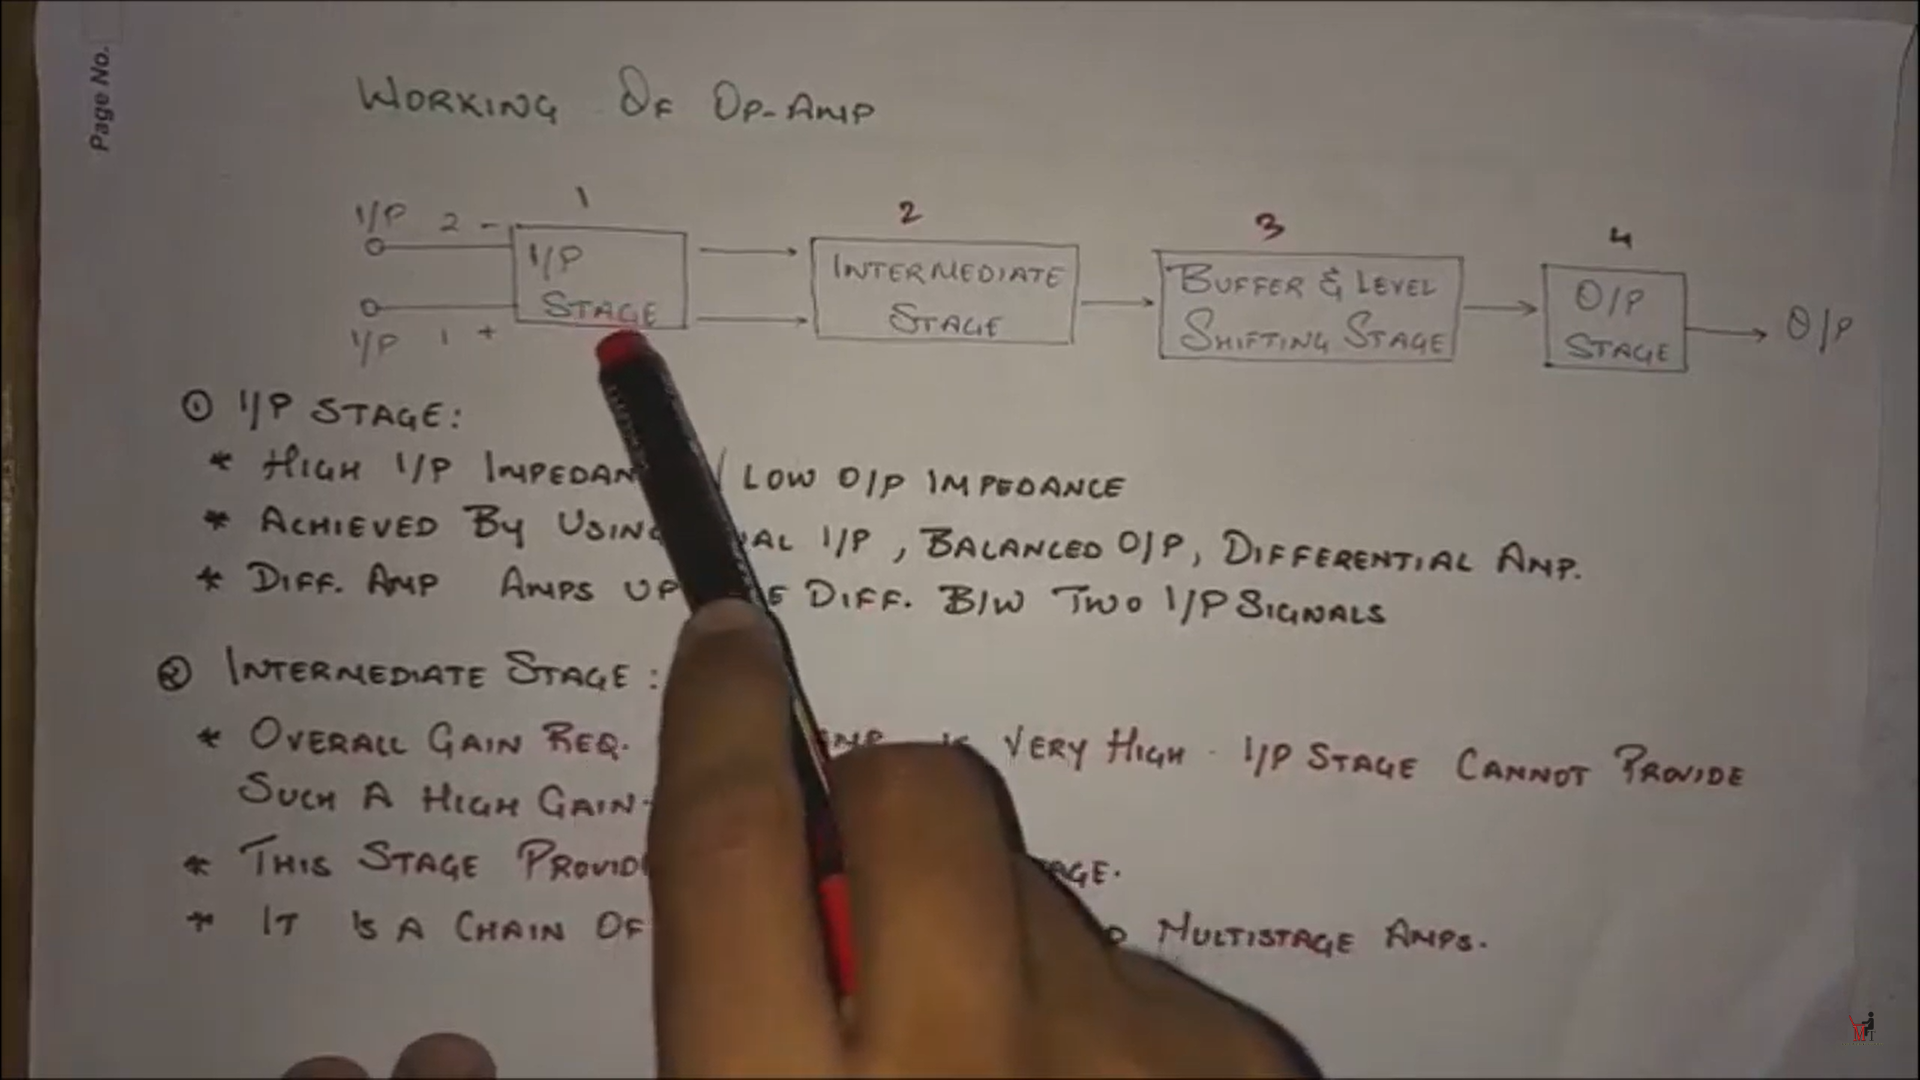 Page No.
WORKING OF OP-AMP
1 2 3 4
I/P 2 -
I/P 1 +
I/P STAGE
INTERMEDIATE STAGE
BUFFER & LEVEL SHIFTING STAGE
O/P STAGE
O/P
① I/P STAGE:
* HIGH I/P / LOW O/P IMPEDANCE
* ACHIEVED BY USING I/P, BALANCED O/P, DIFFERENTIAL AMP.
* DIFF. AMP AMPS UP DIFF. B/W TWO I/P SIGNALS
② INTERMEDIATE STAGE:
* OVERALL GAIN REQ. VERY HIGH. I/P STAGE CANNOT PROVIDE
SUCH A HIGH GAIN.
* THIS STAGE
* IT IS A CHAIN OF MULTISTAGE AMPS.